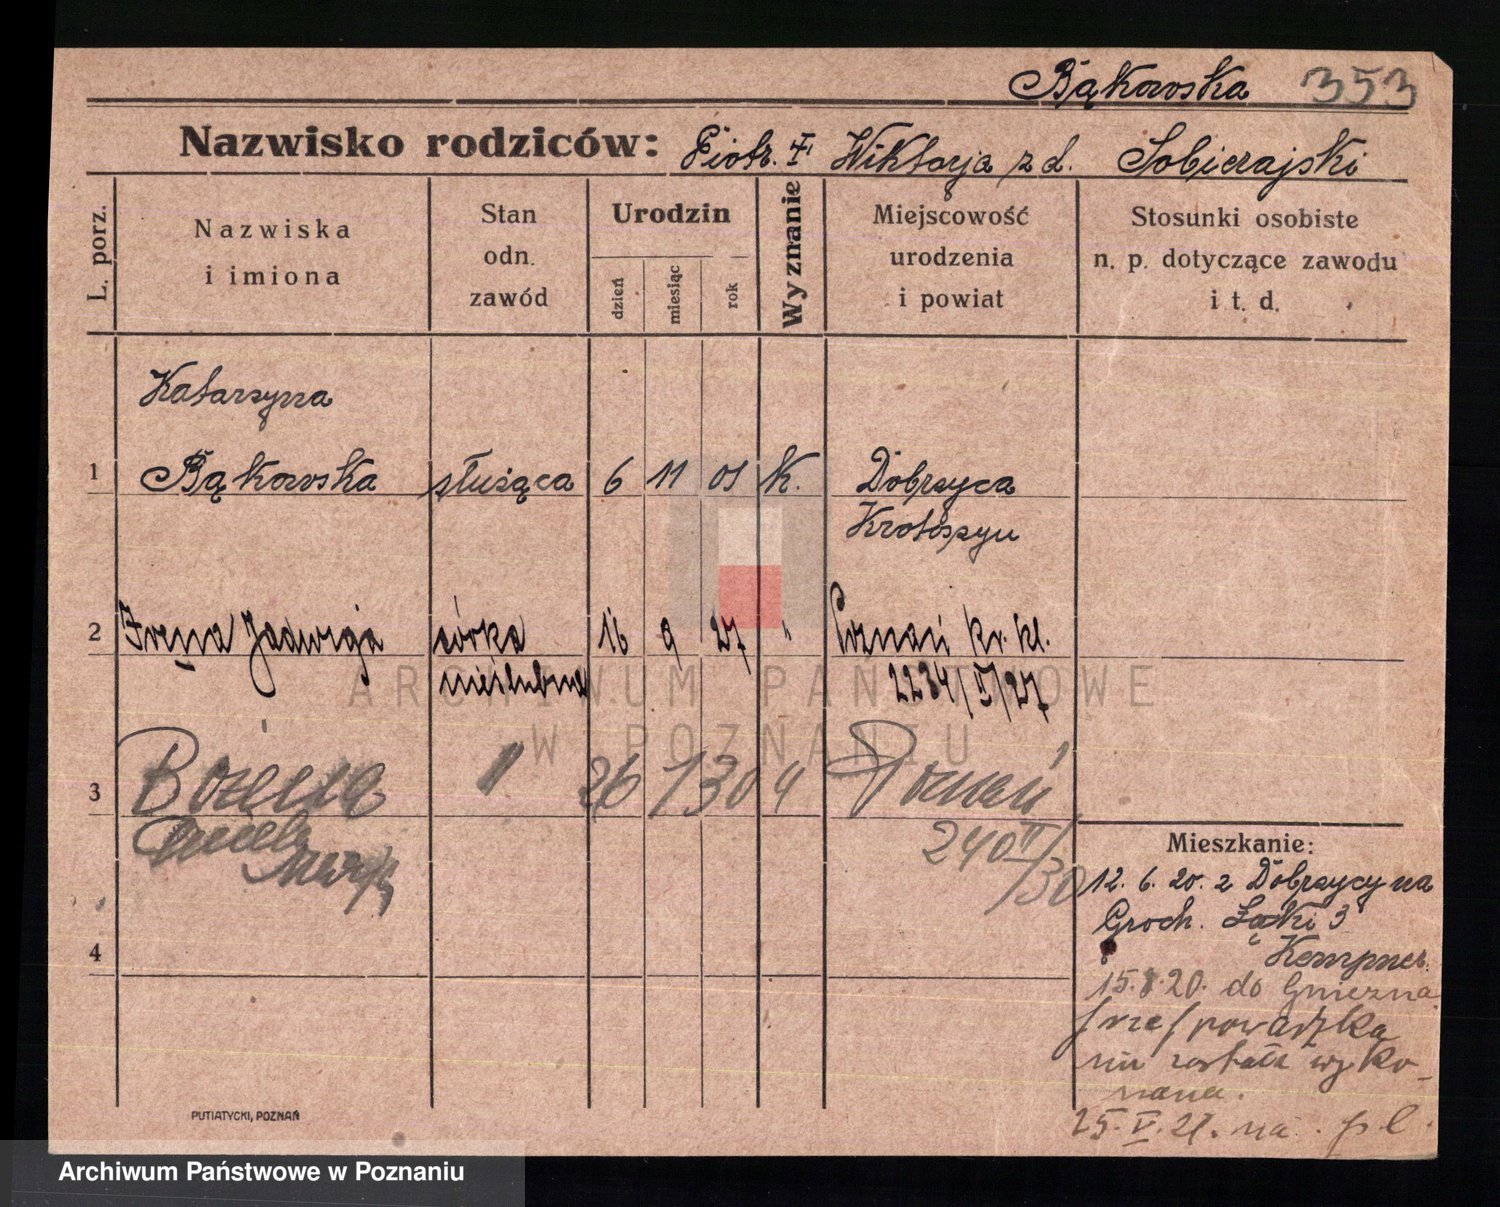 Bąkowska 353
Nazwisko rodziców: Piotr. Wiktorja z d. Sobierajski
L. porz.
Nazwiska
i imiona
Stan
odn.
zawód
Urodzin
dzień
miesiąc
rok
Wyznanie
Miejscowość
urodzenia
i powiat
Stosunki osobiste
n. p. dotyczące zawodu
i t. d.
Katarzyna
1 Bąkowska służąca 6 11 01 k. Dobrzyca
Krotoszyn
2 Irena Jadwiga córka 16 9 27 " Poznań kr. kl.
nieślubna 2234/II/27
ARCHIWUM PAŃSTWOWE
W POZNANIU
3 Bożena " 26 1 30 Poznań
240 II/30
Mieszkanie:
12. 6. 20. z Dobrzycy na
Groch. Łąki 3
4 Kempner.
15. 8. 20. do Gniezna
powyżka
nie została wyko-
nana.
25. V. 21. na pl.
PUTIATYCKI, POZNAŃ
Archiwum Państwowe w Poznaniu